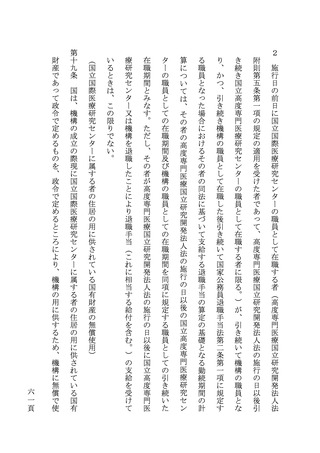 ２　施行日の前日に国立国際医療研究センターの職員として在職する者（高度専門医療国立研究開発法人法
附則第五条第一項の規定の適用を受けた者であって、高度専門医療国立研究開発法人法の施行の日以後引
き続き国立高度専門医療研究センターの職員として在職する者に限る。）が、引き続いて機構の職員とな
り、かつ、引き続き機構の職員として在職した後引き続いて国家公務員退職手当法第二条第一項に規定す
る職員となった場合におけるその者の同法に基づいて支給する退職手当の算定の基礎となる勤続期間の計
算については、その者の高度専門医療国立研究開発法人法の施行の日以後の国立高度専門医療研究セン
ターの職員としての在職期間及び機構の職員としての在職期間を同項に規定する職員としての引き続いた
在職期間とみなす。ただし、その者が高度専門医療国立研究開発法人法の施行の日以後に国立高度専門医
療研究センター又は機構を退職したことにより退職手当（これに相当する給付を含む。）の支給を受けて
いるときは、この限りでない。
（国立国際医療研究センターに属する者の住居の用に供されている国有財産の無償使用）
第十九条　国は、機構の成立の際現に国立国際医療研究センターに属する者の住居の用に供されている国有
財産であって政令で定めるものを、政令で定めるところにより、機構の用に供するため、機構に無償で使
六一頁